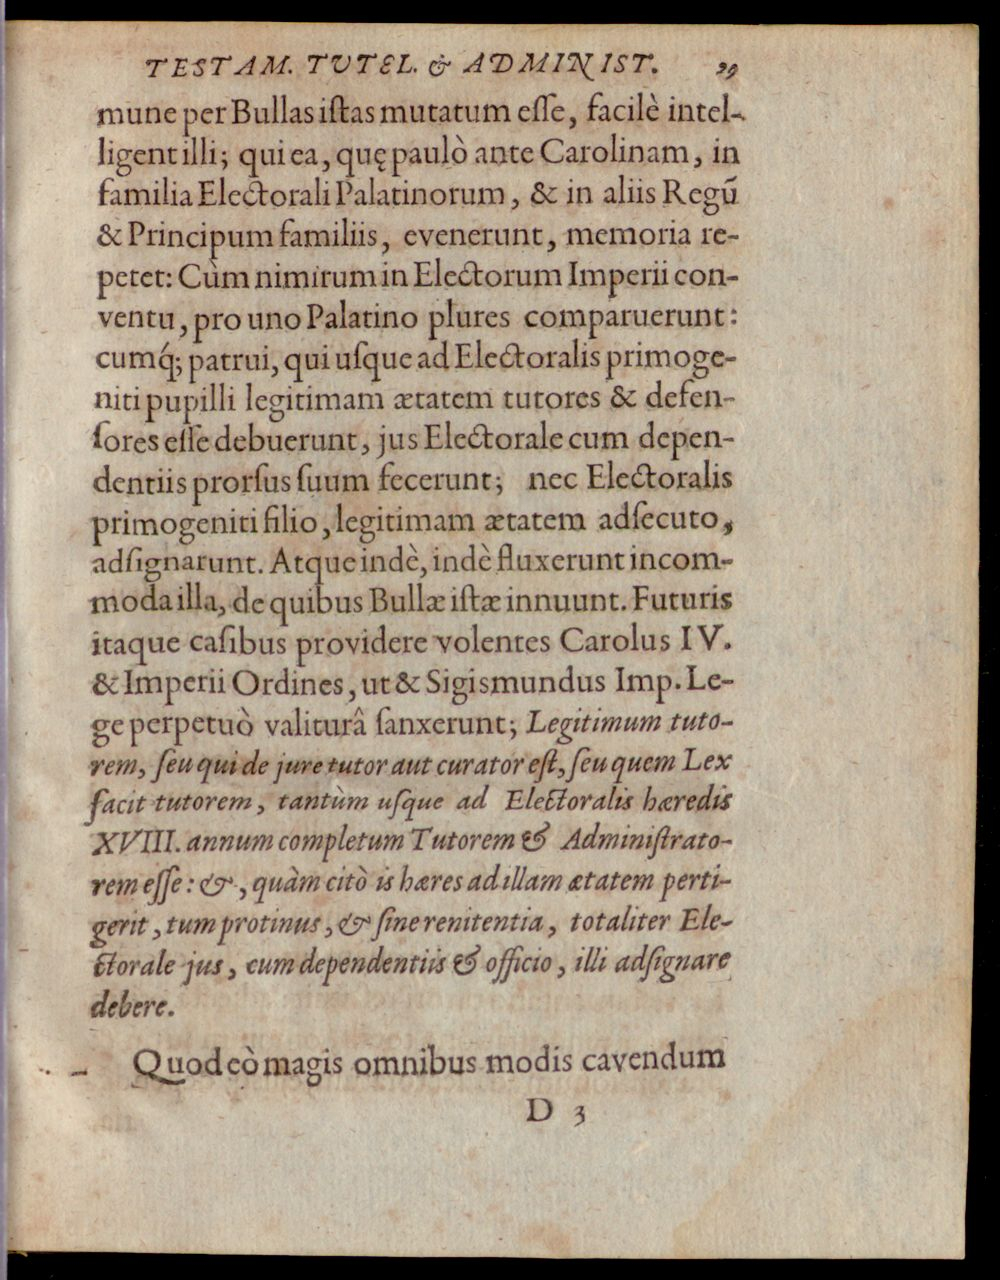 TESTAM. TVTEL. & ADMINIST. 29
mune per Bullas iſtas mutatum eſſe, facilè intel-
ligent illi; qui ea, quę paulò ante Carolinam, in
familia Electorali Palatinorum, & in aliis Regū
& Principum familiis, evenerunt, memoria re-
petet: Cùm nimirum in Electorum Imperii con-
ventu, pro uno Palatino plures comparuerunt:
cumq́; patrui, qui uſque ad Electoralis primoge-
niti pupilli legitimam ætatem tutores & defen-
ſores eſſe debuerunt, jus Electorale cum depen-
dentiis prorſus ſuum fecerunt; nec Electoralis
primogeniti filio, legitimam ætatem adſecuto,
adſignarunt. Atque indè, indè fluxerunt incom-
moda illa, de quibus Bullæ iſtæ innuunt. Futuris
itaque caſibus providere volentes Carolus IV.
& Imperii Ordines, ut & Sigismundus Imp. Le-
ge perpetuò valiturâ ſanxerunt; Legitimum tuto-
rem, ſeu qui de jure tutor aut curator eſt, ſeu quem Lex
facit tutorem, tantùm uſque ad Electoralis hæredis
XVIII. annum completum Tutorem & Adminiſtrato-
rem eſſe: &, quàm citò is hæres ad illam ætatem perti-
gerit, tum protinus, & ſine renitentia, totaliter Ele-
ctorale jus, cum dependentiis & officio, illi adſignare
debere.
Quod eò magis omnibus modis cavendum
D 3